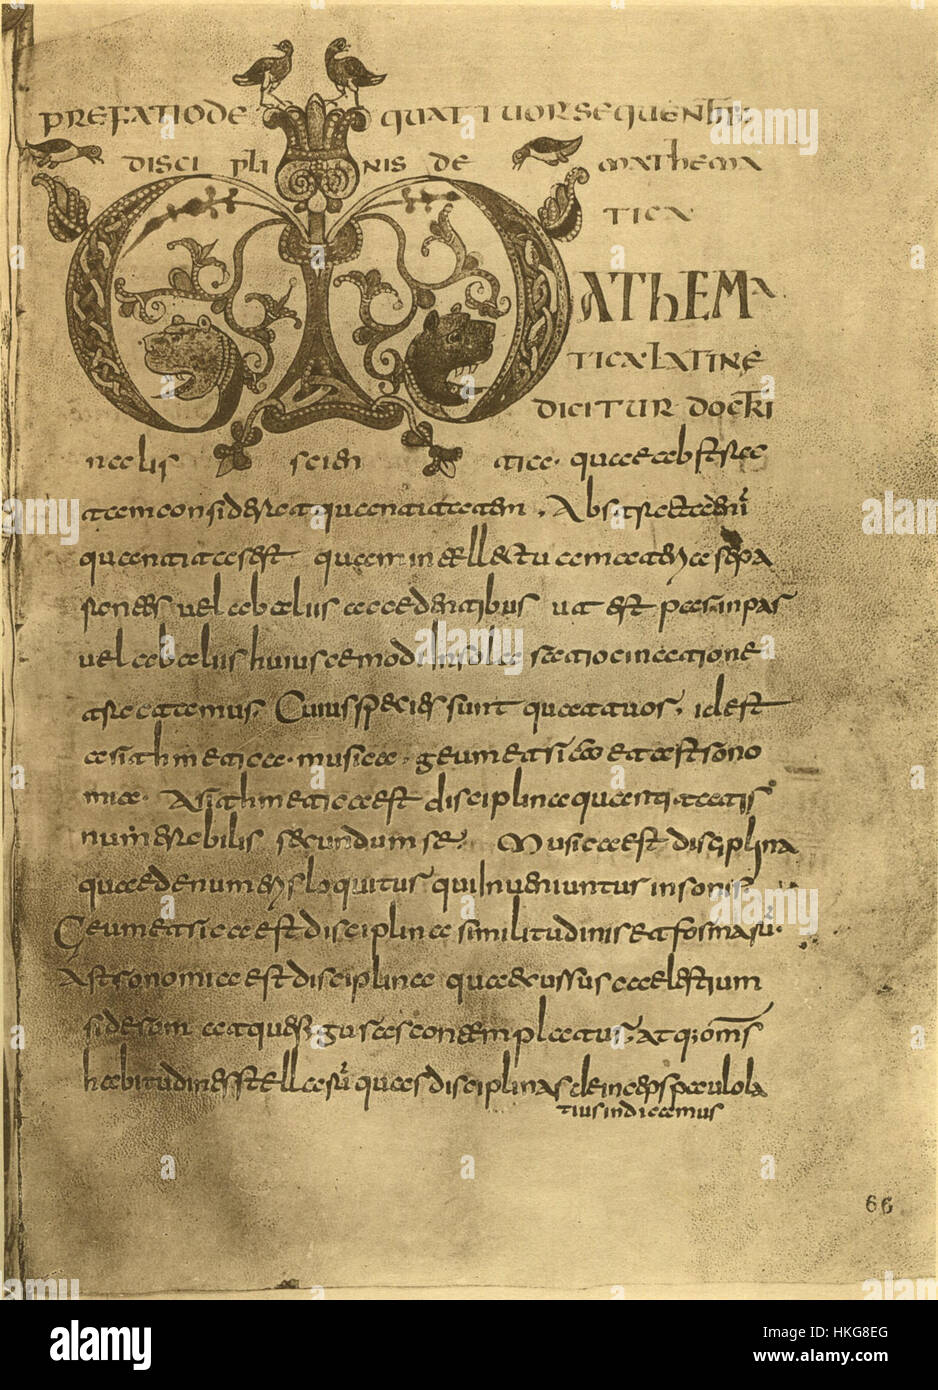 PREFATIO DE QUATTUOR SEQUENTIB;
DISCIPLINIS DE MATHEMA
TICA
MATHEMA
TICA LATINE
DICITUR DOCTRI
nalis scientia quae abstrac
tam considerat quantitatem. Abstracta eni
quantitas est quam intellectu a materia sepa
rantes vel ab aliis accidentibus ut est par inpar
vel ab aliis huiuscemodi in sola ratiocinatione
tractamus. Cuius species sunt quattuor. id est
arithmetica. musica. geumetrica et astrono
mia. Arithmetica est disciplina quantitatis
numerabilis secundum se. Musica est disciplina
quae de numeris loquitur qui inveniuntur in sonis
Geumetrica est disciplina similitudinis et formaru.
Astronomica est disciplina quae cursus caelestium
siderum atque figuras contemplatur. atq; oms
habitudines stellaru quas disciplinas deinceps paulo la
tius indicamus
66
alamy
Image ID: HKG8EG
www.alamy.com